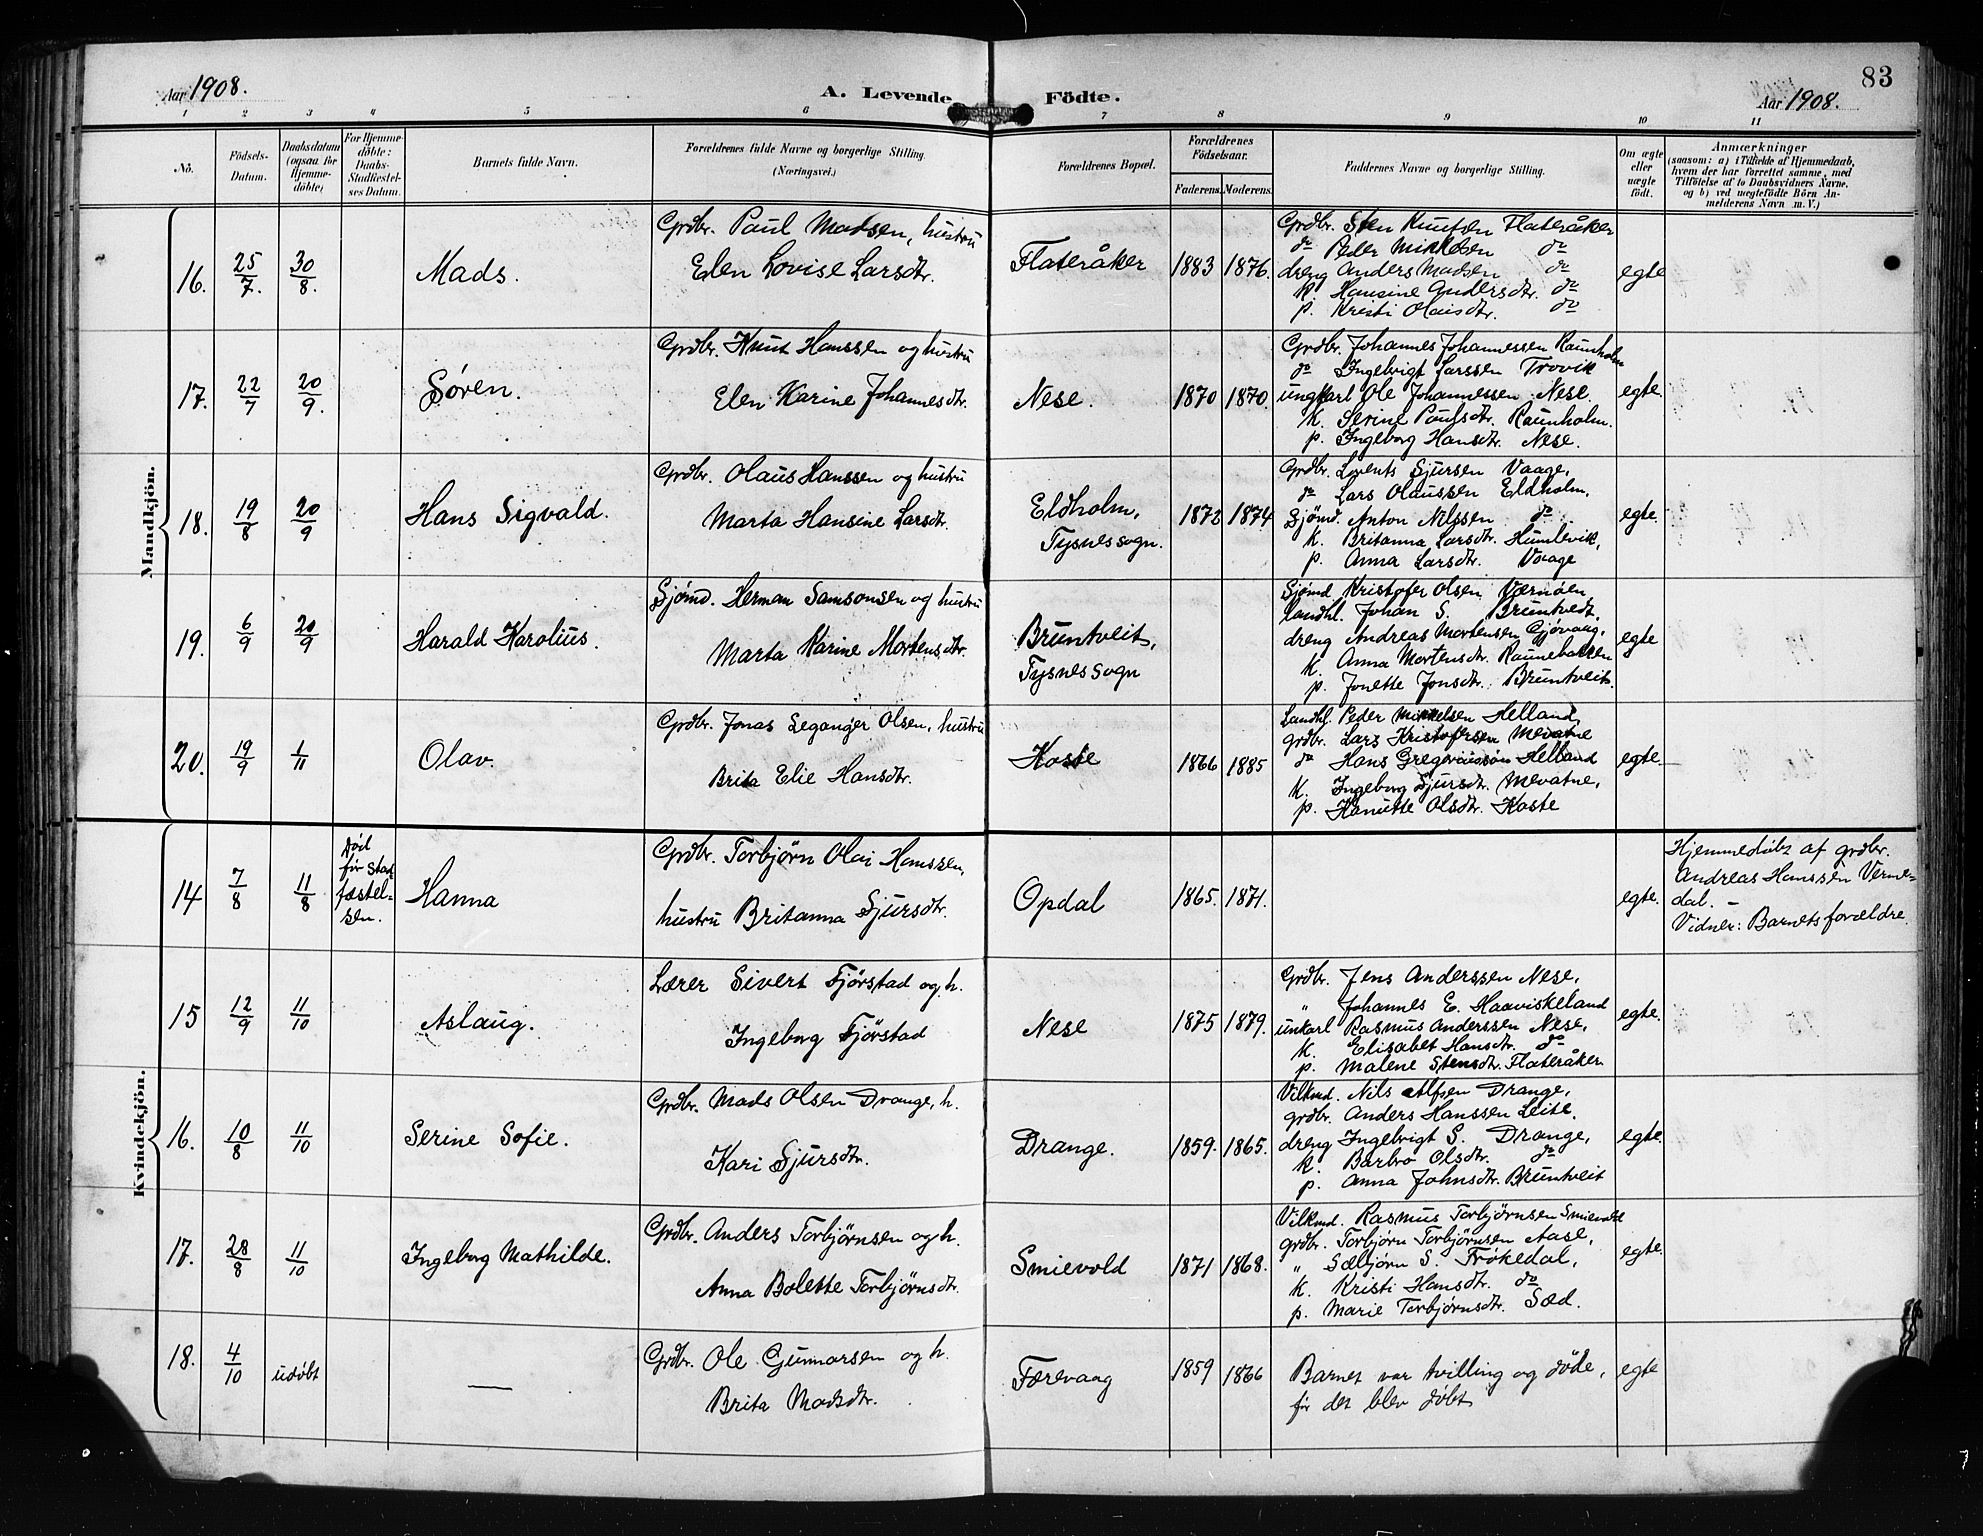 Aar 1908.
A. Levende Födte.
83
Aar 1908.
1 2 3 4 5 6 7 8 9 10 11
No.
Födsels-Datum.
Daabsdatum (ogsaa for Hjemmedöbte)
For Hjemmedöbte: Daabs-Stadfæstelses Datum.
Barnets fulde Navn.
Forældrenes fulde Navne og borgerlige Stilling. (Næringsvei.)
Forældrenes Bopæl.
Forældrenes Födselsaar.
Faderens. Moderens.
Faddernes Navne og borgerlige Stilling.
Om ægte eller uægte født.
Anmærkninger
(saasom: a) i Tilfælde af Hjemmedaab, hvem der har forrettet samme, med Tilföielse af to Daabsvidners Navne, og b) ved uegtefödte Börn Anmelderens Navn m. V.)
Mandkjön.
16. 25/7. 30/8. Mads.
Grdbr. Paul Madsen, hustru
Elen Lovise Larsdtr.
Flateråker 1883 1876.
Grdbr. Sten Knutsen Flateråker
do Peder Mikkelsen do
dreng Anders Madsen do
k. Hansine Andersdtr. do
p. Kristi Olaisdtr. do
egte
17. 22/7 20/9. Søren.
Grdbr. Knut Hanssen og hustru
Elen Karine Johannesdtr.
Nese. 1870 1870.
Grdbr. Johannes Johannessen Raunholm
do Ingebrigt Larssen Trovik
ungkarl Ole Johannessen Nese.
k. Serine Paulsdtr. Raunholm.
p. Ingeborg Hansdtr. Nese.
egte.
18. 19/8 20/9 Hans Sigvald.
Grdbr. Olaus Hanssen og hustru
Marta Hansine Larsdtr.
Eldholm,
Tysnes sogn.
1873 1874
Grdbr. Lorents Sjursen Vaage,
do Lars Olaussen Eldholm,
Sjømd. Anton Nilssen do
k. Britanna Larsdtr. Humlevik,
p. Anna Larsdtr. Vaage
egte.
19. 6/9 20/9 Harald Karolius.
Sjømd. Herman Samsonsen og hustru
Marta Karine Mortensdtr.
Bruntveit,
Tysnes sogn
Sjømd Kristofer Olsen Værnøen
Landhl. Johan S. Bruntvedt,
dreng Andreas Mortensen Gjøvaag,
k. Anna Mortensdtr. Raunebakken
p. Jonette Jonsdtr. Bruntveit.
egte
20. 19/9 1/11 Olav.
Grdbr. Jonas Leganger Olsen, hustru
Brita Elie Hansdtr.
Koste 1866 1885
Landhl. Peder Mikkelsen Helland,
grdbr. Lars Kristofersen Mevatne
do Hans Gregoriussøn Helland
k. Ingeborg Sjursdtr. Mevatne,
p. Hanette Olsdtr. Koste
egte.
Kvindekjön.
14 7/8 11/8
Død
før stad
fæstel-
sen.
Hanna
Grdbr. Torbjørn Olai Hanssen,
hustru Britanna Sjursdtr.
Opdal 1865. 1871.
egte.
Hjemmedøbt af grdbr.
Andreas Hanssen Verne-
dal. –
Vidner: Barnets forældre.
15 12/9 11/10 Aslaug.
Lærer Sivert Fjørstad og h.
Ingeborg Fjørstad
Nese 1875 1879.
Grdbr. Jens Anderssen Nese,
" Johannes E. Haaviskeland
unkarl Rasmus Anderssen Nese,
k. Elisabet Hansdtr. do
p. Malene Stensdtr. Flateråker
egte.
16. 10/8 11/10 Serine Sofie.
Grdbr. Mads Olsen Drange, h.
Kari Sjursdtr.
Drange. 1859. 1865.
Vilkmd. Nils Alfsen Drange,
grdbr. Anders Hanssen Leite.
dreng Ingebrigt S. Drange,
k. Barbro Olsdtr. do
p. Anna Johnsdtr. Bruntveit
egte.
17. 28/8 11/10 Ingeborg Mathilde.
Grdbr. Anders Torbjørnsen og h.
Anna Bolette Torbjørnsdtr.
Smievold 1871 1868.
Vilkmd. Rasmus Torbjørnsen Smievold
grdbr. Torbjørn Torbjørnsen Aase,
" Sæbjørn S. Frøkedal,
k. Kristi Hansdtr. do
p. Marie Torbjørnsdtr. Sæd.
egte.
18. 4/10 udøbt —
Grdbr. Ole Gunnarsen og h.
Brita Madsdtr.
Færevaag 1859 1866
Barnet var tvilling og døde,
før det blev døbt
egte